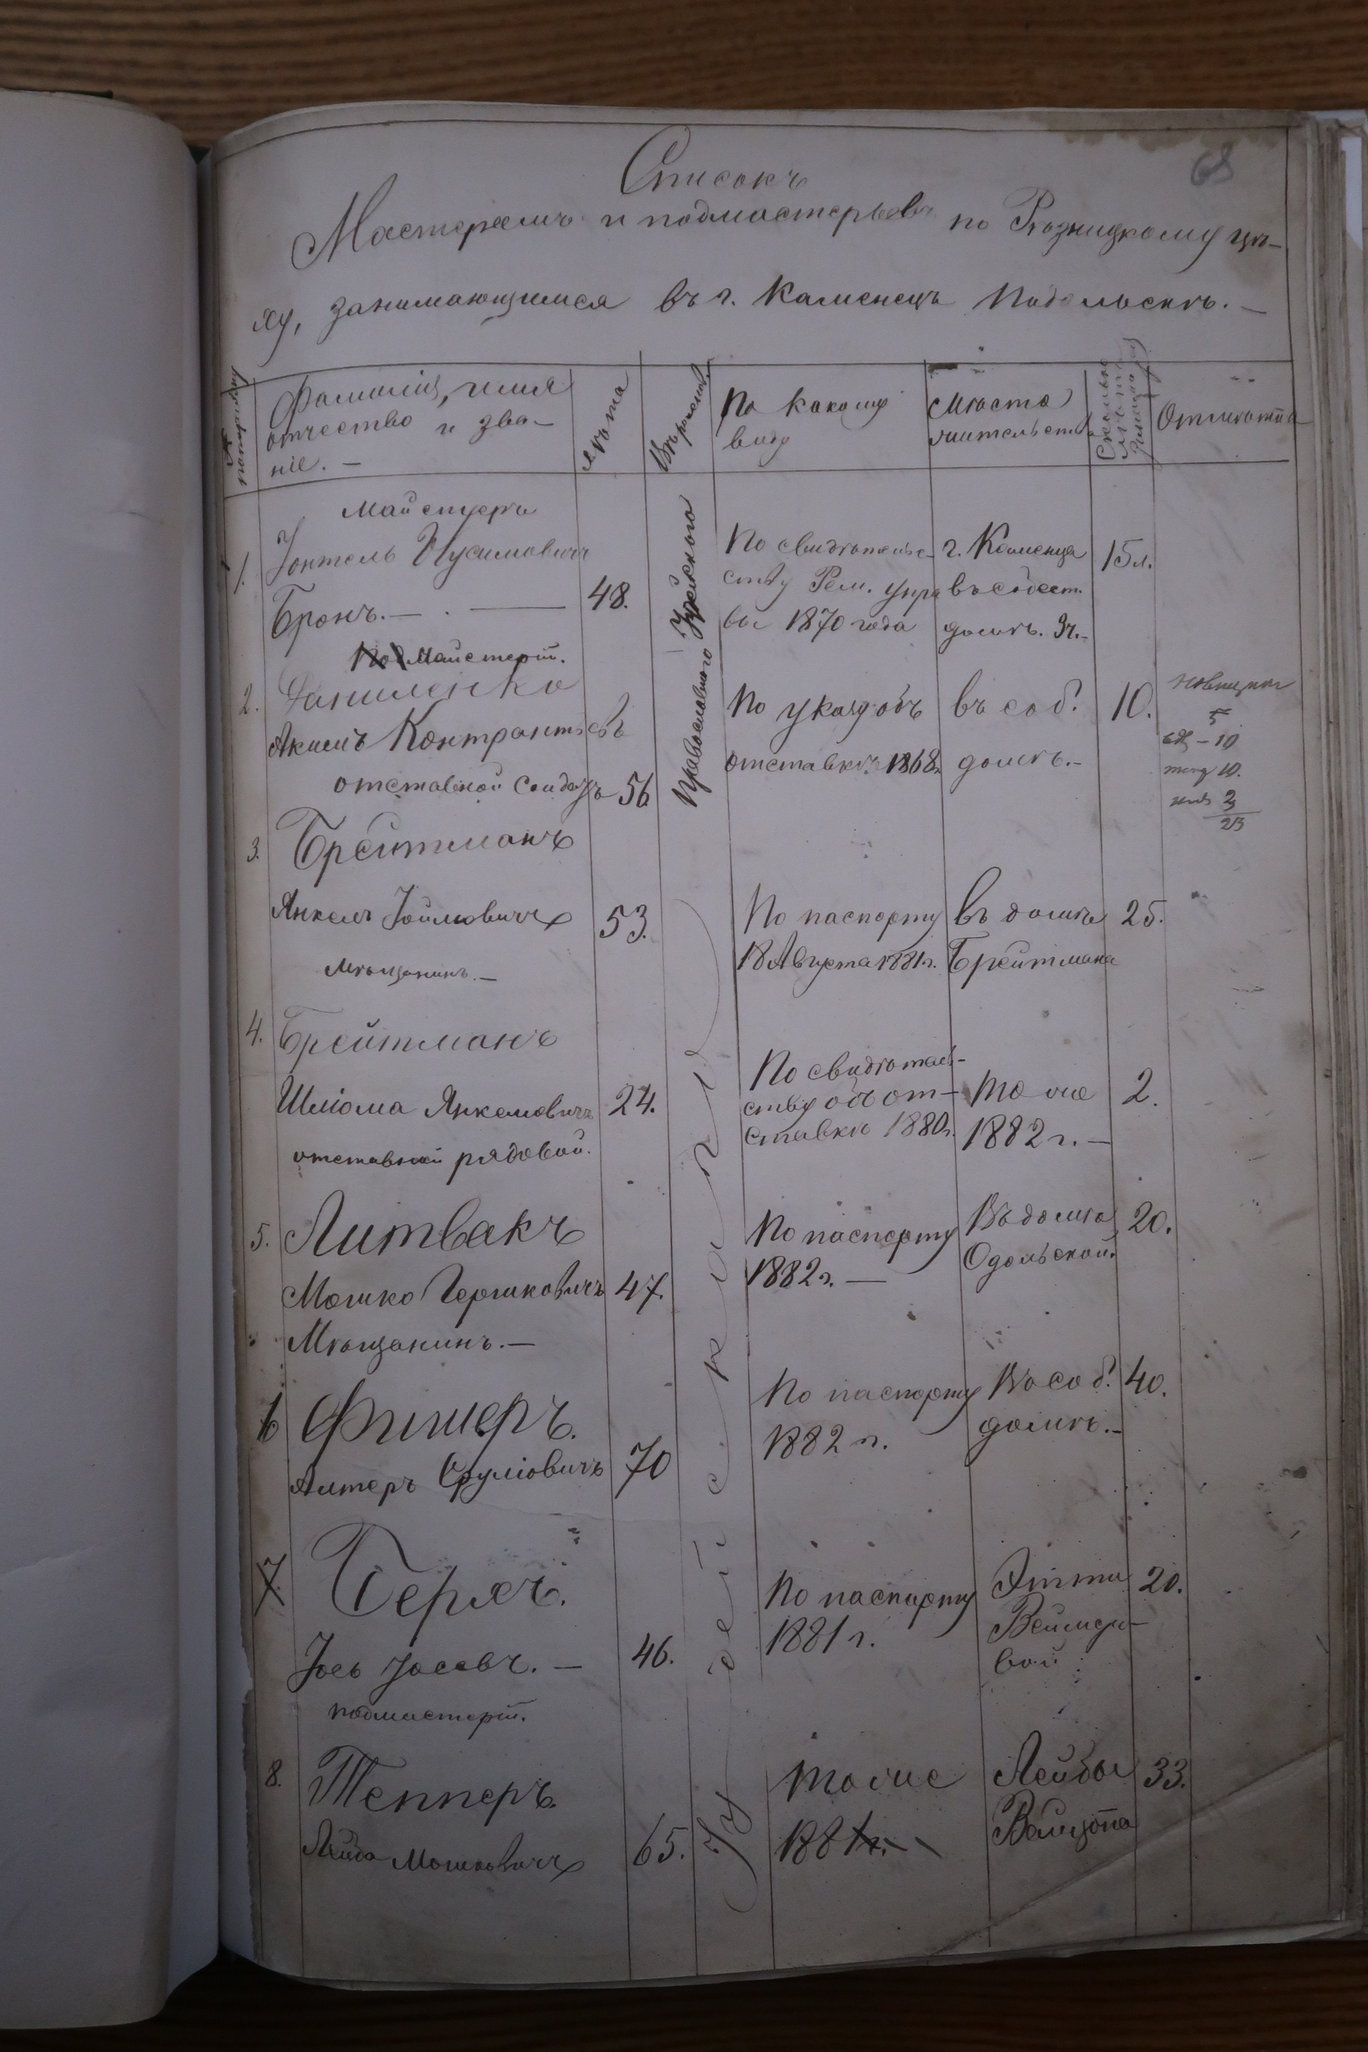 68
Списокъ
Мастерамъ и подмастерьевъ по Рѣзницкому цѣ-
ху, занимающимся въ г. Каменецъ Подольскѣ. —
Фамилія, имя
отчество и зва-
ніе. —
Лѣта
По какому
виду
Мѣсто
жительства
Сколько
лѣтъ
Отмѣтка
Майстеръ
1.
Іонтель Нусимовичъ
Бронъ. —
48.
Іудейскаго
По свидѣтельс-
тву Рем. Упра
вы 1870 года
г. Каменца
въ собст.
домѣ. 3ч. -
15 л.
Под Майстерій.
2.
Даниленко
Акимъ
отставной Солдатъ
56
Православнаго
По указу объ
отставкѣ 1868 г.
въ соб.
домѣ. -
10.
5
10
10.
3
23
3.
Брейтманъ
Янкель Іойловичъ
мѣщанинъ. —
53.
По паспорту
18 Августа 1881 г.
въ домѣ
Брейтмана
25.
4.
Брейтманъ
Шліома Янкелевичъ
отставной рядовой.
24.
По свидѣтель-
ству объ от-
ставкѣ 1880 г.
тоже
1882 г. —
2.
5.
Литвакъ
Мошко Гершковичъ
Мѣщанинъ. —
47.
По паспорту
1882 г. —
Въ домѣ
20.
6
Фишеръ.
Алтеръ Сруліовичъ
70
По паспорту
1882 г.
Въ соб.
домѣ. -
40.
7.
Іось Іосевъ. —
подмастерій.
46.
По паспорту
1881 г.
Этти
20.
8.
Тепперъ.
Лейба Мошковичъ
65.
тоже
1881 г.
Лейбы
33.
Іудейская